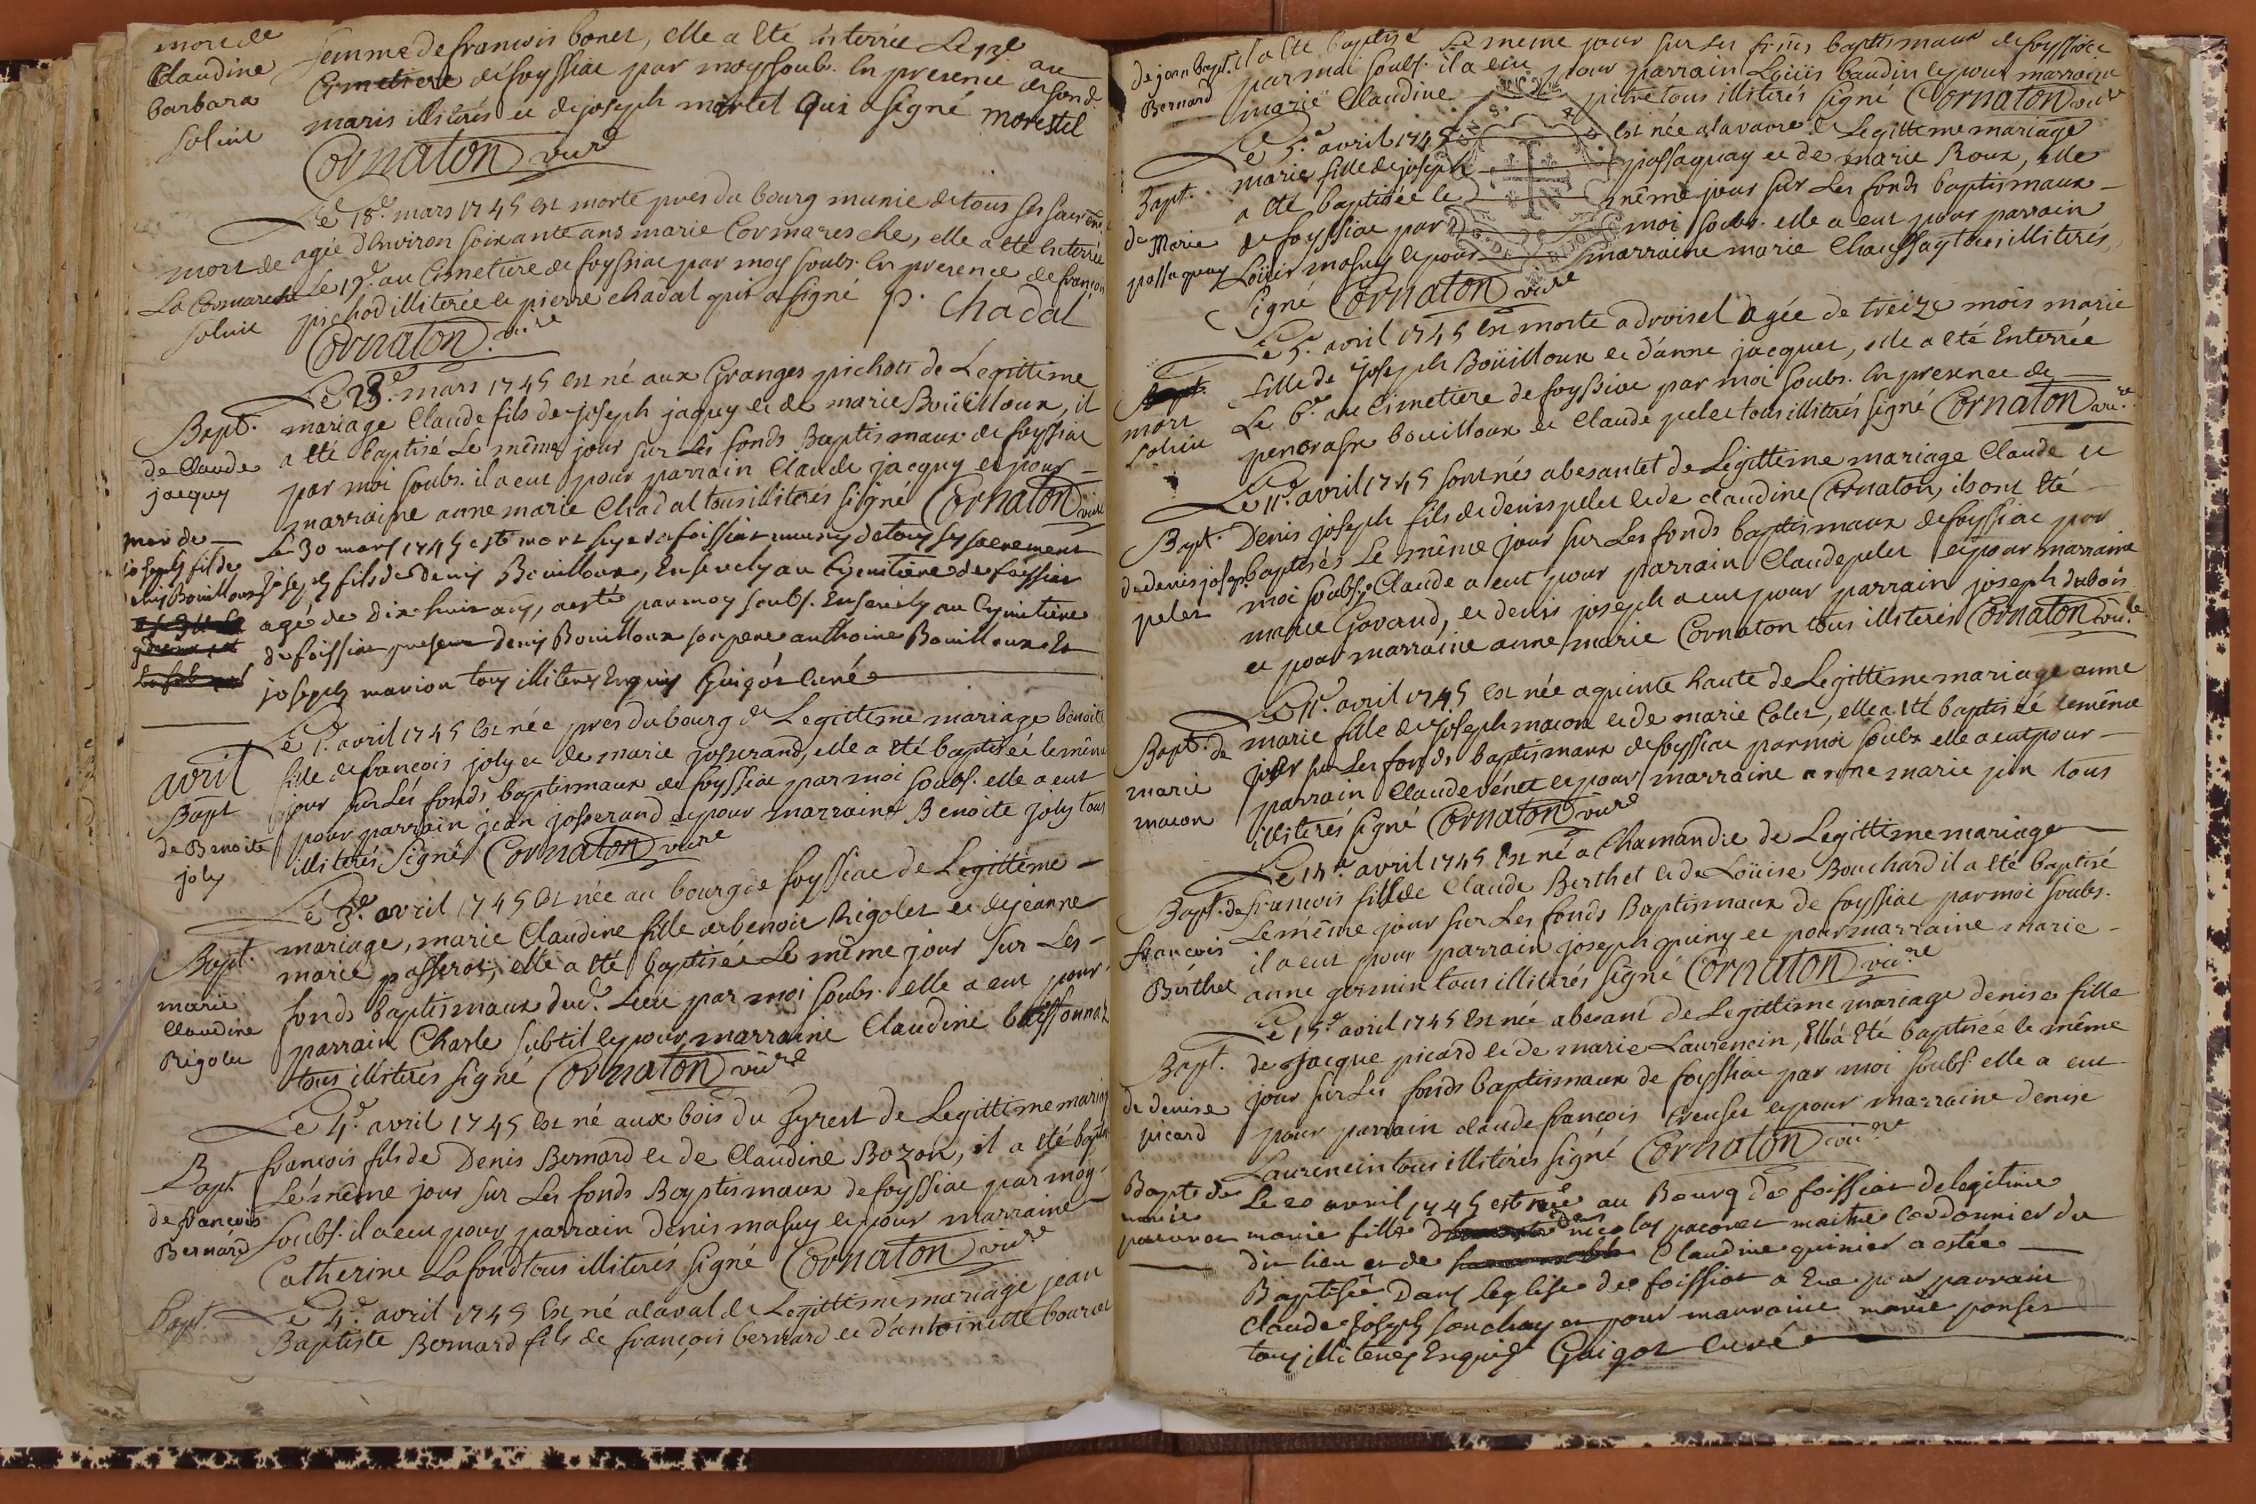 mort de
Claudine
barbara
solvit
femme de francois bonet, elle a été énterrée Le
Cimetiere de foyssiac par moy soub. En presence
maris illiterés et de joseph mortel Qui a signé morestel
Cornaton vicre
Le 18e. mars 1745 est morte pres du bourg munie de tous ses
mort de
La Cormareche
solvit
agée d'environ soixante ans marie Cormaresche, elle a été enterrée
Le 19e. au Cimetiere de foyssiac par moy soubs. En presence de francois
pichod illiterée et pierre chadal qui a signé P. Chadal
Cornaton vire
Bapt.
de Claude
jacquy
Le 23e. mars 1745 est né aux Granges pichots de Légittime
mariage Claude fils de joseph jaquy et de marie Boüilloux, il
a été baptisé Le même jour sur Les fonds Baptismaux de foyssiac
par moi soubs. il a eut pour parrain Claude jacquy et pour
marraine anne marie Chadal tous illiterés signé Cornaton vicre
mor de
joseph fils de
denis Bouilloux
Le 30 mars 1745 est mort a foissiat muny de tous ses sacrement
joseph fils de denis Bouilloux,
age de dix huit ans, a esté par moy soubs. Ensevely au Cymitière
de foissiat present denis Bouilloux son pere anthoine Bouilloux Et
joseph marion tous illiteres Enquis Guigot curé
avril
Bapt
de Benoite
joly
Le 1er. avril 1745 est née pres du bourg de Legittime mariage benoite
fille de francois joly et de marie josserand, elle a été baptisée le même
jour sur Les fonds baptismaux de foyssiac par moi soubs. elle a eut
pour parrain jean josserand et pour marraine Benoite joly tous
illiterés Signé Cornaton vicre
Bapt.
marie
Claudine
Rigolet
Le 3e. avril 1745 est née au bourg de foyssiac de Legittime
mariage, marie Claudine fille de benoit Rigolet et de jeanne
marie passerot, elle a été baptisée Le même jour sur Les
fonds baptismaux dud. Lieu par moi soubs. elle a eut pour
parrain Charle subtil et pour marraine Claudine
tous illiterés signé Cornaton vicre
Bapt
de françois
Bernard
Le 4e. avril 1745 est né aux bois du de Legittime mariage
françois fils de Denis Bernard et de Claudine Bozon, il a été baptisé
Le même jour sur Les fonds Baptismaux de foyssiac par moy
Soubs. il a eut pour parrain denis masuy et pour marraine
Catherine Lafond tous illiterés signé Cornaton vicre
Bapt.
Le 4e. avril 1745 Est né a laval de Legittime mariage jean
Baptiste Bernard fils de françois bernard et d'antoinette bourcet
de jean bapt.
Bernard
il a été baptisé Le même jour sur Les fonds baptismaux de foyssiac
par moi soubs. il a eu pour parrain Loüis baudin et pour marraine
marie Claudine tous illiterés signé Cornaton vicre
Bapt.
de Marie
passaquay
Le 5e. avril 1745 est née de Legittime mariage
marie fille de joseph passaquay et de marie Roux, elle
a été baptisée le même jour sur Les fonds baptismaux
de foyssiac par moi soubs. elle a eut pour parrain
Loüis masuy et pour marraine marie Chaussay tous illiterés
signé Cornaton vicre
mort
solvit
Le 5e. avril 1745 est morte a droisel agée de treize mois marie
fille de joseph Boüilloux et d'anne jacquet, elle a été Enterrée
Le 6e. au Cimetiere de foyssiac par moi soubs. En presence de
bouilloux et Claude pelet tous illiterés signé Cornaton vicre
Bapt.
de denis joseph
pelet
Le 11e. avril 1745 sont nés a besantet de Légittime mariage Claude et
Denis joseph fils de denis pelet et de claudine Cornaton, ils ont été
baptisés Le même jour sur Les fonds baptismaux de foyssiac par
moi soubs. Claude a eut pour parrain Claude pelet et pour marraine
marie Govand, et denis joseph a eut pour parrain joseph dubois
et pour marraine anne marie Cornaton tous illiterés Cornaton vicre
Bapt. de
marie
macon
Le 11e. avril 1745 est née a quinte haute de Legittime mariage anne
marie fille de Joseph macon et de marie Colet, elle a été baptisée le même
jour sur Les fonds baptismaux de foyssiac par moi soubs elle a eut pour
parrain Claude vénet et pour marraine anne marie pin tous
illiterés signé Cornaton vicre
Bapt. de
francois
Bérthet
Le 14e. avril 1745 est né a Chamandre de Legittime mariage
francois fils de Claude Berthet et de Loüise Bouchard il a été baptisé
Le même jour sur Les fonds Baptismaux de foyssiac par moi soubs.
il a eut pour parrain joseph puiny et pour marraine marie
anne germin tous illiterés signé Cornaton vicre
Bapt.
de denise
picard
Le 15e. avril 1745 est née a besant de Legittime mariage denise fille
de Jacque picard et de marie Laurencin, Elle a été baptisée le même
jour sur Les fonds baptismaux de foyssiac par moi soubs. elle a eut
pour parrain claude françois Creuset et pour marraine denise
Laurencin tous illiterés signé Cornaton vicre
Bapt. de
marie
pacoret
Le 20 avril 1745 est née au Bourg de foissiat de legitime
marie fille de nicolas pacoret maitre cordonnier du
dit lieu et de Claudine quinier a estée
Baptisée Dans leglise de foissiat a Eu pour parrain
Claude Joseph Sonchay et pour marraine marie ponset
tous illiteres Enquis Guigot curé